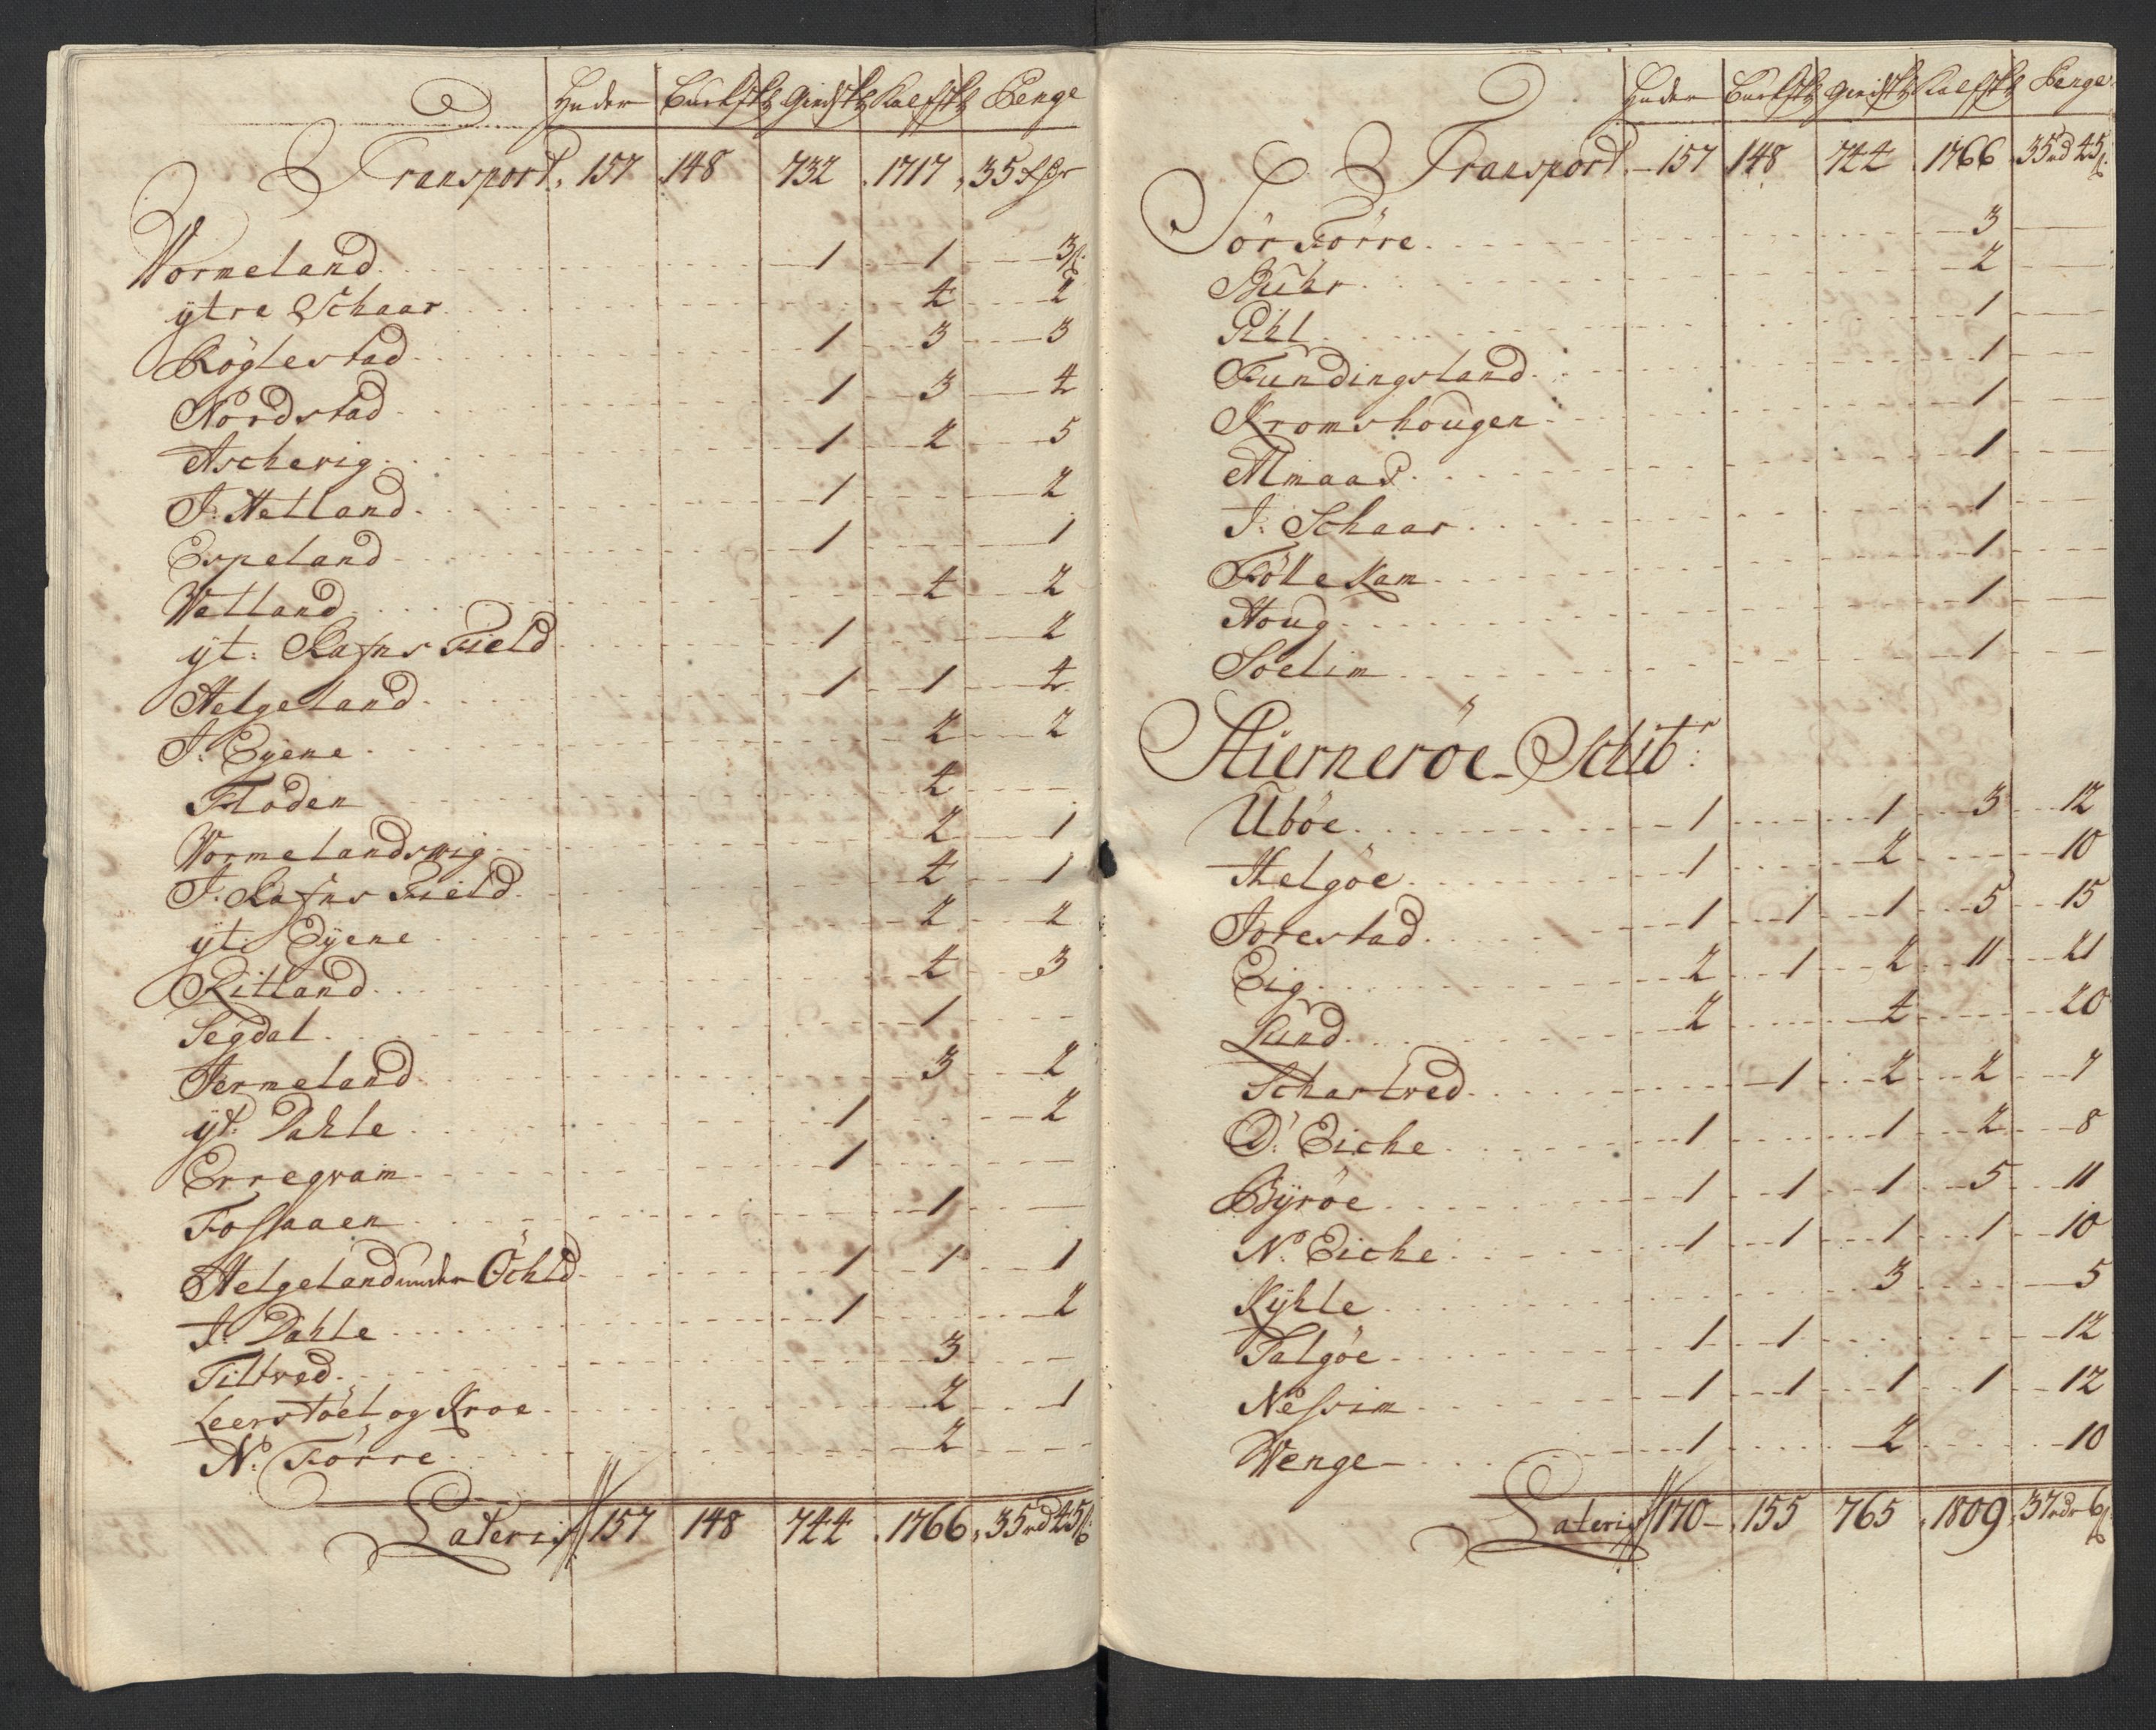 Huder Buckskd Giedskd Kalfskd Penge
Transport. 157 148 732 1717 35
Wormeland 1 1 3ß
ytre Schaar 4 2
Röglestad 1 3 3
Nordstad 1 3 4
Aschevig 1 2 5
J: Hetland 1 2
Espeland 1 1
Watland 4 2
yt: Rafns Field 1 2
Helgeland 1 1 4
J: Eyene 2 2
Floden 4
Wormelandswig 2 1
J: Rafns Field 4 1
yt: Eyene 2 2
Ritland 4 3
Segdal 1
Jermeland 3 2
yt: Dahle 1 2
Erregvam 1
Fossaaen 1
Helgeland under Öchld 1 1 1
J: Dahle 1 2
Tiltved 3
Leerstöel og Kroe 2 1
N: Förre 2
Lateris 157 148 744 1766 35rd 45ß
Huder Buckskd Giedskd Kalfskd Penge
Transport 157 148 744 1766 35rd 45ß
Sör Förre 3
Buhr 2
Pihl 1
Fundingsland 1
Kromshougen 1
Almaas 1
J: Schaar 1
Föllekam 1
Houg 1
Soelim 1
Hierneröe Schibr:
Uböe 1 1 3 12
Helgöe 1 2 10
Jorestad 1 1 1 5 15
Eig 2 1 2 11 21
Lund 2 4 20
Schartved 1 2 2 7
D: Eiche 1 1 2 8
Byröe 1 1 1 5 11
N: Eiche 1 1 1 1 10
Kyhle 3 5
Talgöe 1 1 12
Nessim 1 1 1 1 12
Wenge 1 2 10
Lateris 170 155 765 1809 37rdr 6ß